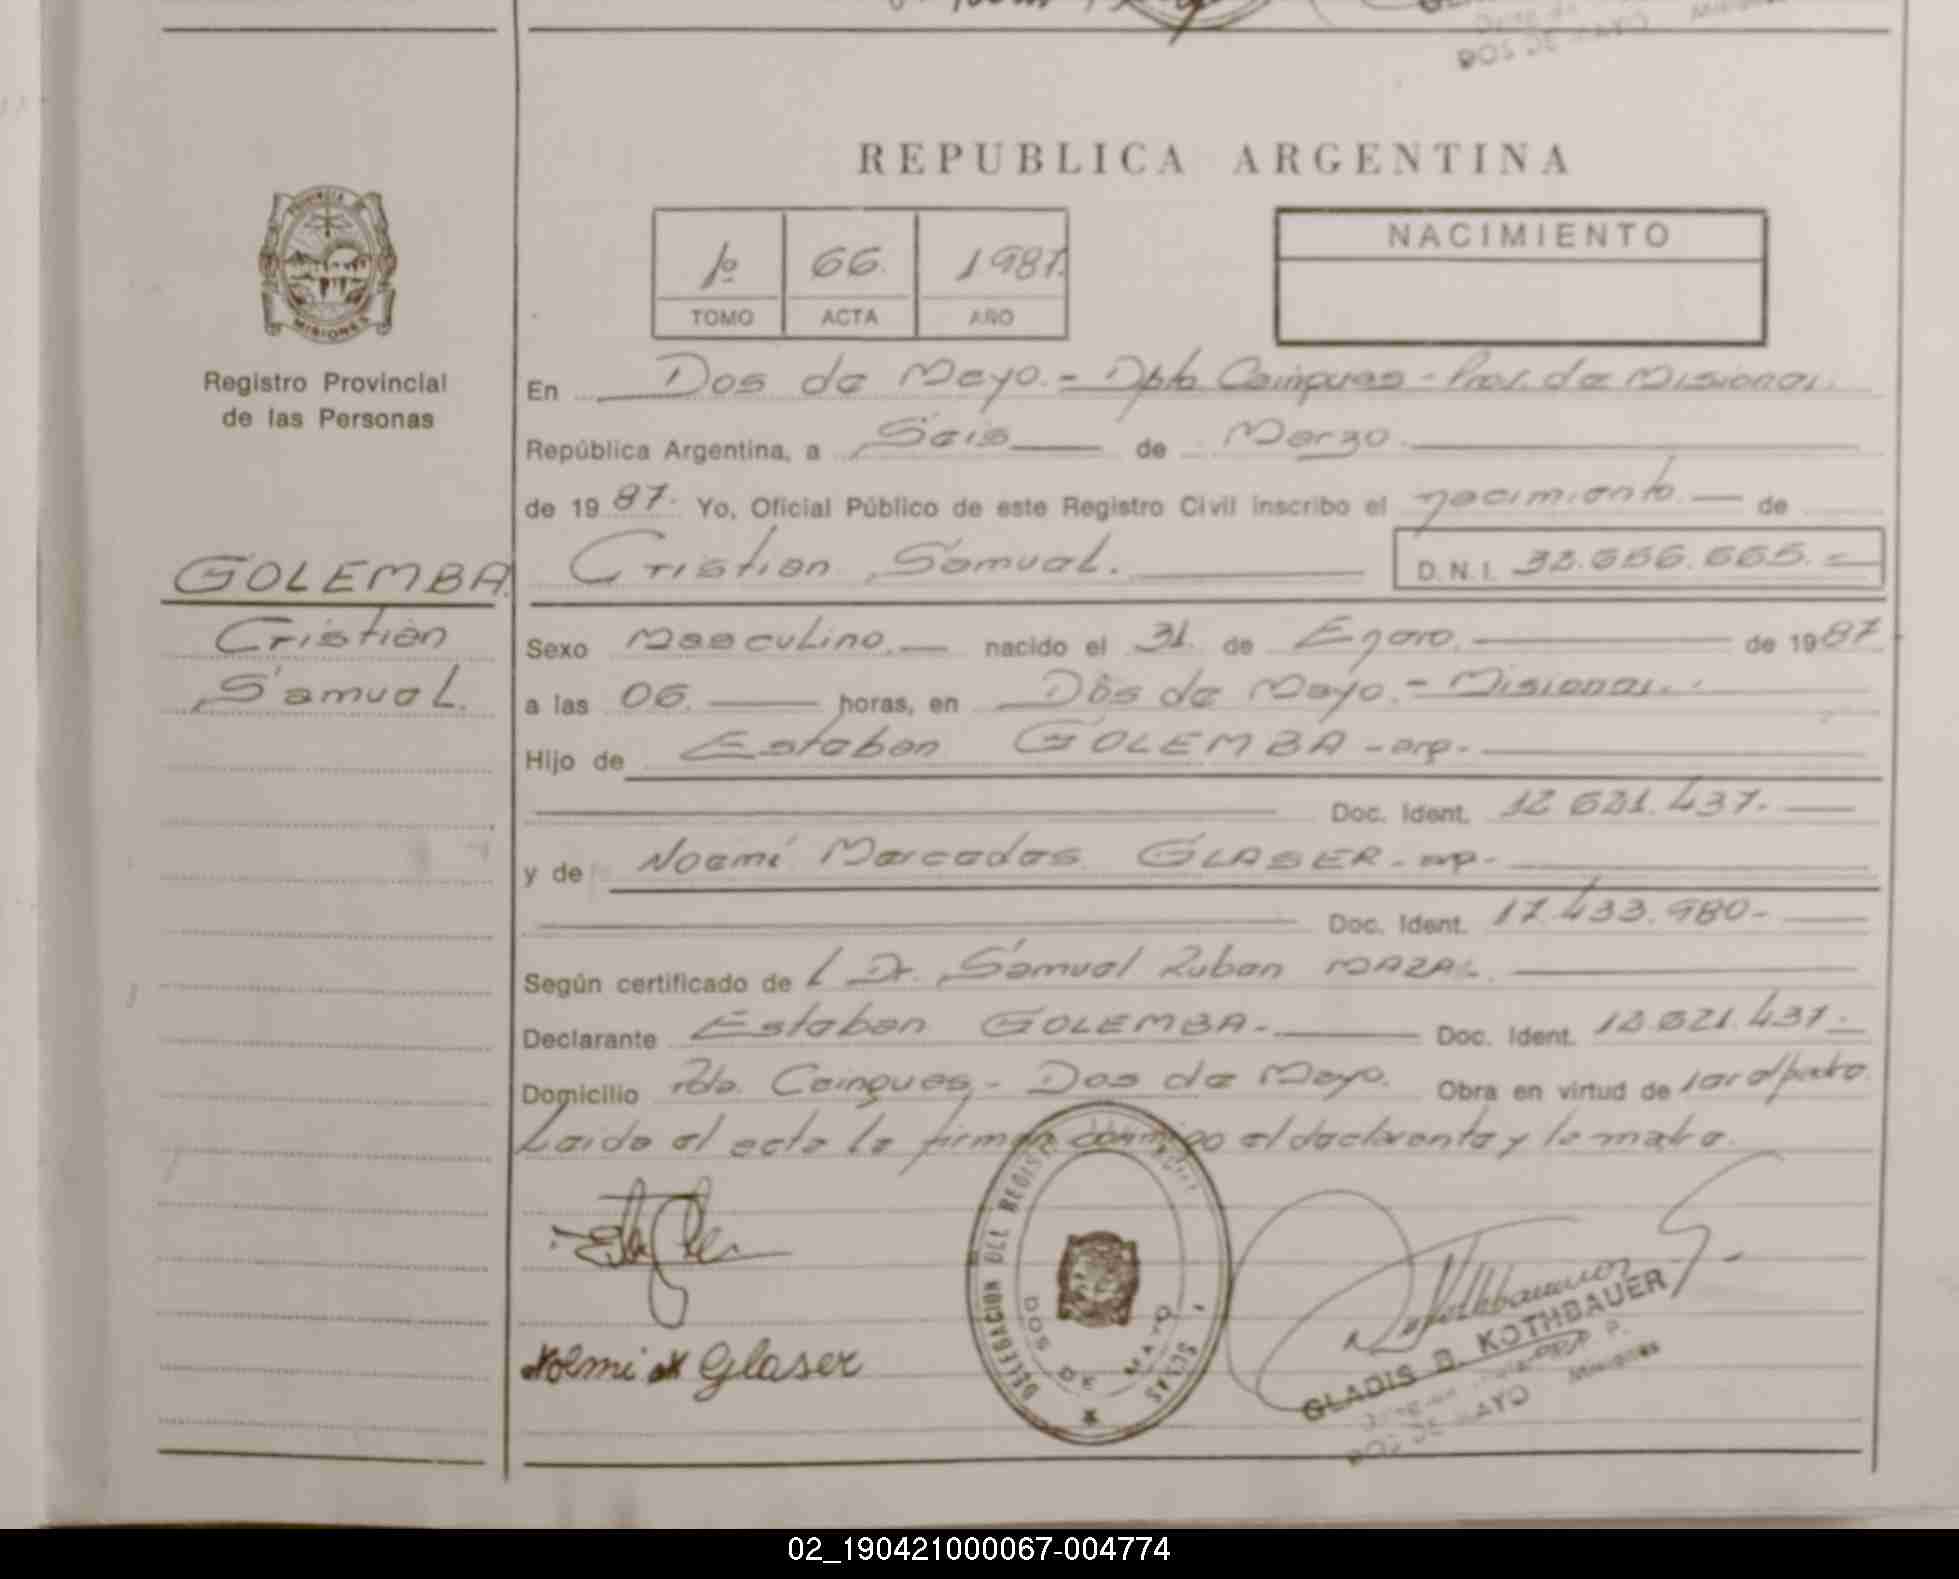 REPUBLICA ARGENTINA
PROVINCIA DE
MISIONES
Registro Provincial
de las Personas
1º 66. 1987.
TOMO ACTA AÑO
NACIMIENTO
En Dos de Mayo.- Dpto Cainguas - Prov. de Misiones.
República Argentina, a Seis de Marzo.
de 19 87. Yo, Oficial Público de este Registro Civil inscribo el nacimiento. de
GOLEMBA. Cristian Samuel. D.N.I. 32.656.665.=
Cristian
Samuel.
Sexo Masculino. nacido el 31. de Enero. de 1987
a las 06. horas, en Dos de Mayo.- Misiones.
Hijo de Esteban GOLEMBA - arg.-
Doc. Ident. 12 621.437.
y de Noemí Mercedes GLASER - arg.-
Doc. Ident. 17.433.980-
Según certificado de l Dr. Samuel Ruben MAZAL.
Declarante Esteban GOLEMBA.- Doc. Ident. 12.621.437.
Domicilio Pdo. Cainguas,- Dos de Mayo. Obra en virtud de ser el padre
Leida el acta la firman conmigo el declarante y la madre.
DELEGACION DEL REGISTRO
DOS DE MAYO
Noemi M Glaser
Kothbauer
GLADIS B. KOTHBAUER
DOS DE MAYO Misiones
02_190421000067-004774